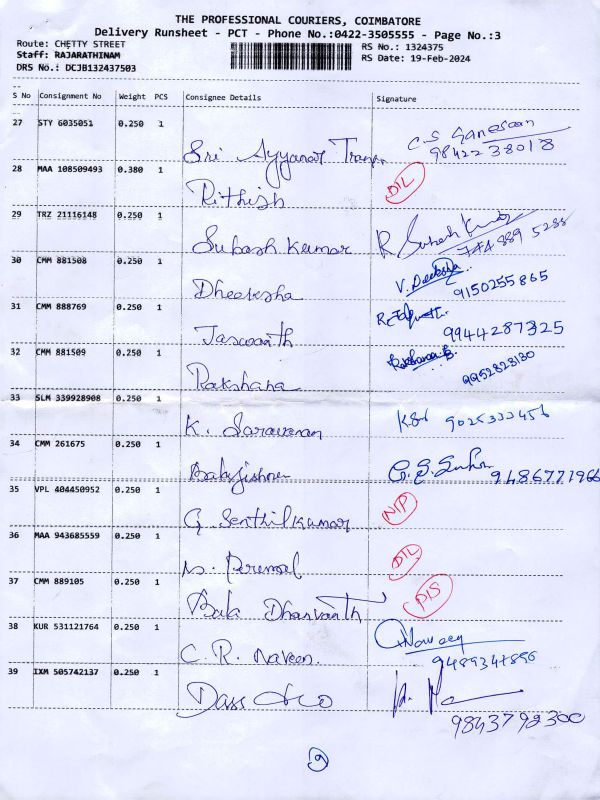 THE PROFESSIONAL COURIERS, COIMBATORE
Delivery Runsheet - PCT - Phone No.:0422-3505555 - Page No.:3
Route: CHETTY STREET
RS No.: 1324375
Staff: RAJARATHINAM
RS Date: 19-Feb-2024
DRS No.: DCJB132437503
S No Consignment No Weight PCS Consignee Details Signature
27 STY 6035051 0.250 1 Sri Ayyanar C.S Ganesan
9842238018
28 MAA 108509493 0.380 1 Rithish DIL
29 TRZ 21116148 0.250 1 Subash Kumar R Subash Kumar
30 CMM 881508 0.250 1 Dheeksha V. Deeksha
9150255865
31 CMM 888769 0.250 1 Jaswanth
9944287325
32 CMM 881509 0.250 1 Rakshana Rakshana B.
9952823130
33 SLM 339928908 0.250 1 K. Saravanan 9025333456
34 CMM 261675 0.250 1 9486771966
35 VPL 404450952 0.250 1 G Senthilkumar N/P
36 MAA 943685559 0.250 1 N. Perumal DIL
37 CMM 889105 0.250 1 Bala Dharvanth DIS
38 KUR 531121764 0.250 1 C. R. Naveen. Naveen
9489347896
39 IXM 505742137 0.250 1 Dass & Co
9843792300
9